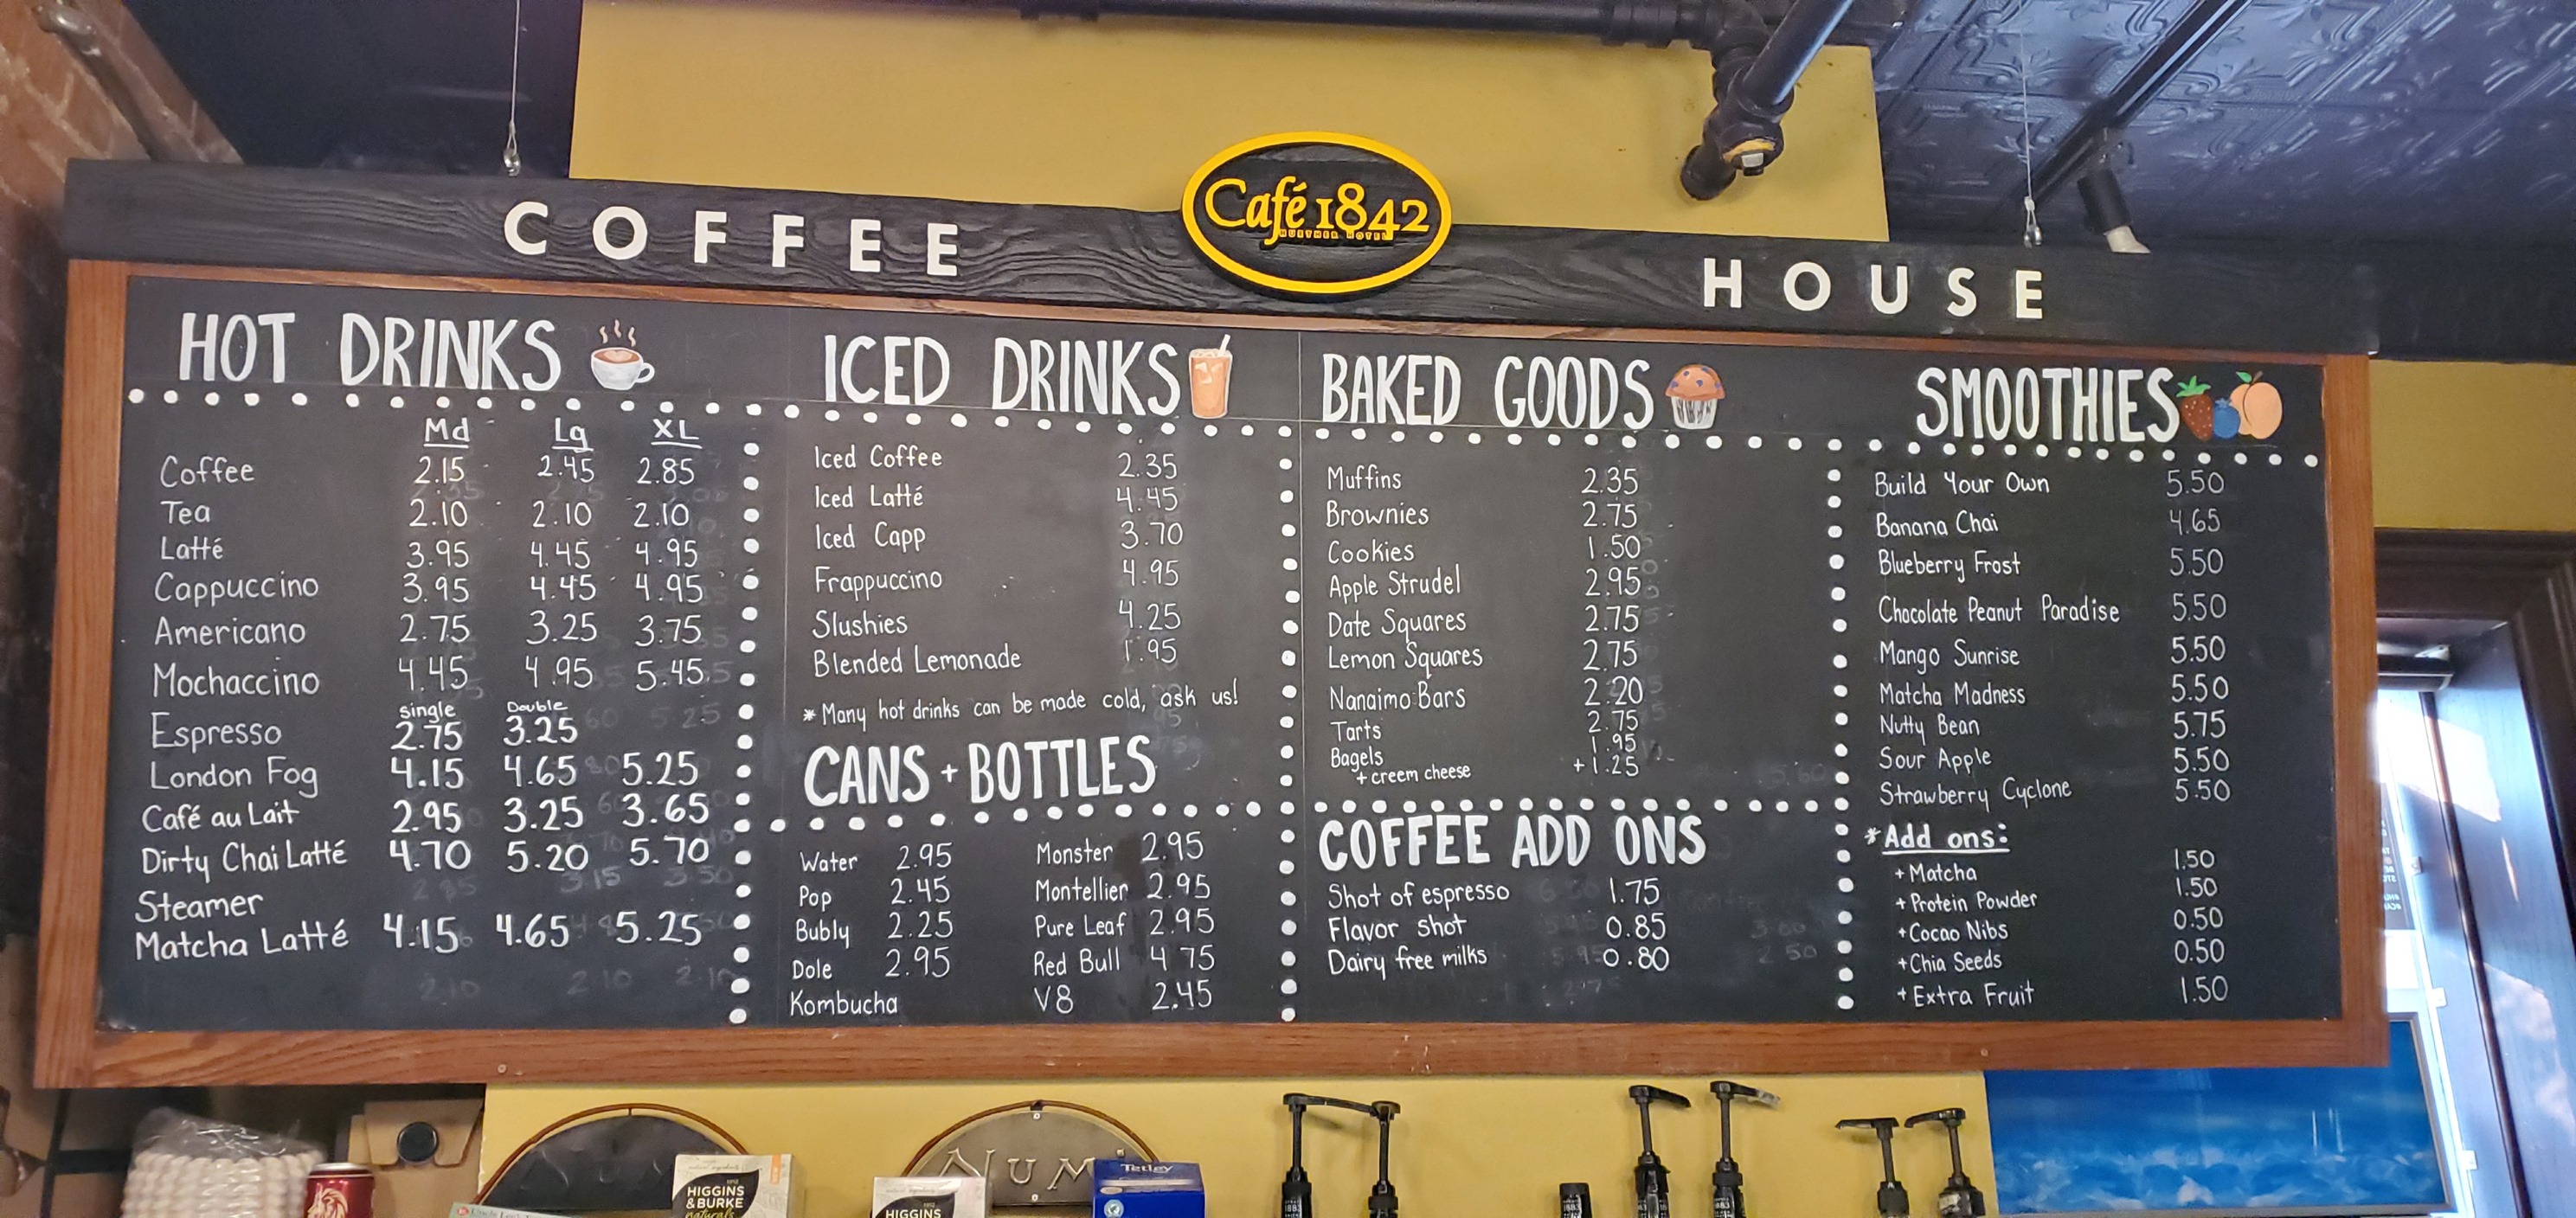 COFFEE
Café 1842
HUETHER HOTEL
HOUSE
HOT DRINKS
Md Lg XL
Coffee 2.15 2.45 2.85
Tea 2.10 2.10 2.10
Latté 3.95 4.45 4.95
Cappuccino 3.95 4.45 4.95
Americano 2.75 3.25 3.75
Mochaccino 4.45 4.95 5.45
single Double
Espresso 2.75 3.25
London Fog 4.15 4.65 5.25
Café au Lait 2.95 3.25 3.65
Dirty Chai Latté 4.70 5.20 5.70
Steamer
Matcha Latté 4.15 4.65 5.25
ICED DRINKS
Iced Coffee 2.35
Iced Latté 4.45
Iced Capp 3.70
Frappuccino 4.95
Slushies 4.25
Blended Lemonade 1.95
* Many hot drinks can be made cold, ask us!
CANS + BOTTLES
Water 2.95 Monster 2.95
Pop 2.45 Montellier 2.95
Bubly 2.25 Pure Leaf 2.95
Dole 2.95 Red Bull 4 75
Kombucha V8 2.45
BAKED GOODS
Muffins 2.35
Brownies 2.75
Cookies 1.50
Apple Strudel 2.95
Date Squares 2.75
Lemon Squares 2.75
Nanaimo Bars 2.20
Tarts 2.75
Bagels 1.95
+ creem cheese +1.25
COFFEE ADD ONS
Shot of espresso 1.75
Flavor shot 0.85
Dairy free milks 0.80
SMOOTHIES
Build Your Own 5.50
Banana Chai 4.65
Blueberry Frost 5.50
Chocolate Peanut Paradise 5.50
Mango Sunrise 5.50
Matcha Madness 5.50
Nutty Bean 5.75
Sour Apple 5.50
Strawberry Cyclone 5.50
* Add ons:
+ Matcha 1.50
+ Protein Powder 1.50
+ Cocao Nibs 0.50
+ Chia Seeds 0.50
+ Extra Fruit 1.50
HIGGINS
& BURKE
naturals
HIGGINS
NUM
Tetley